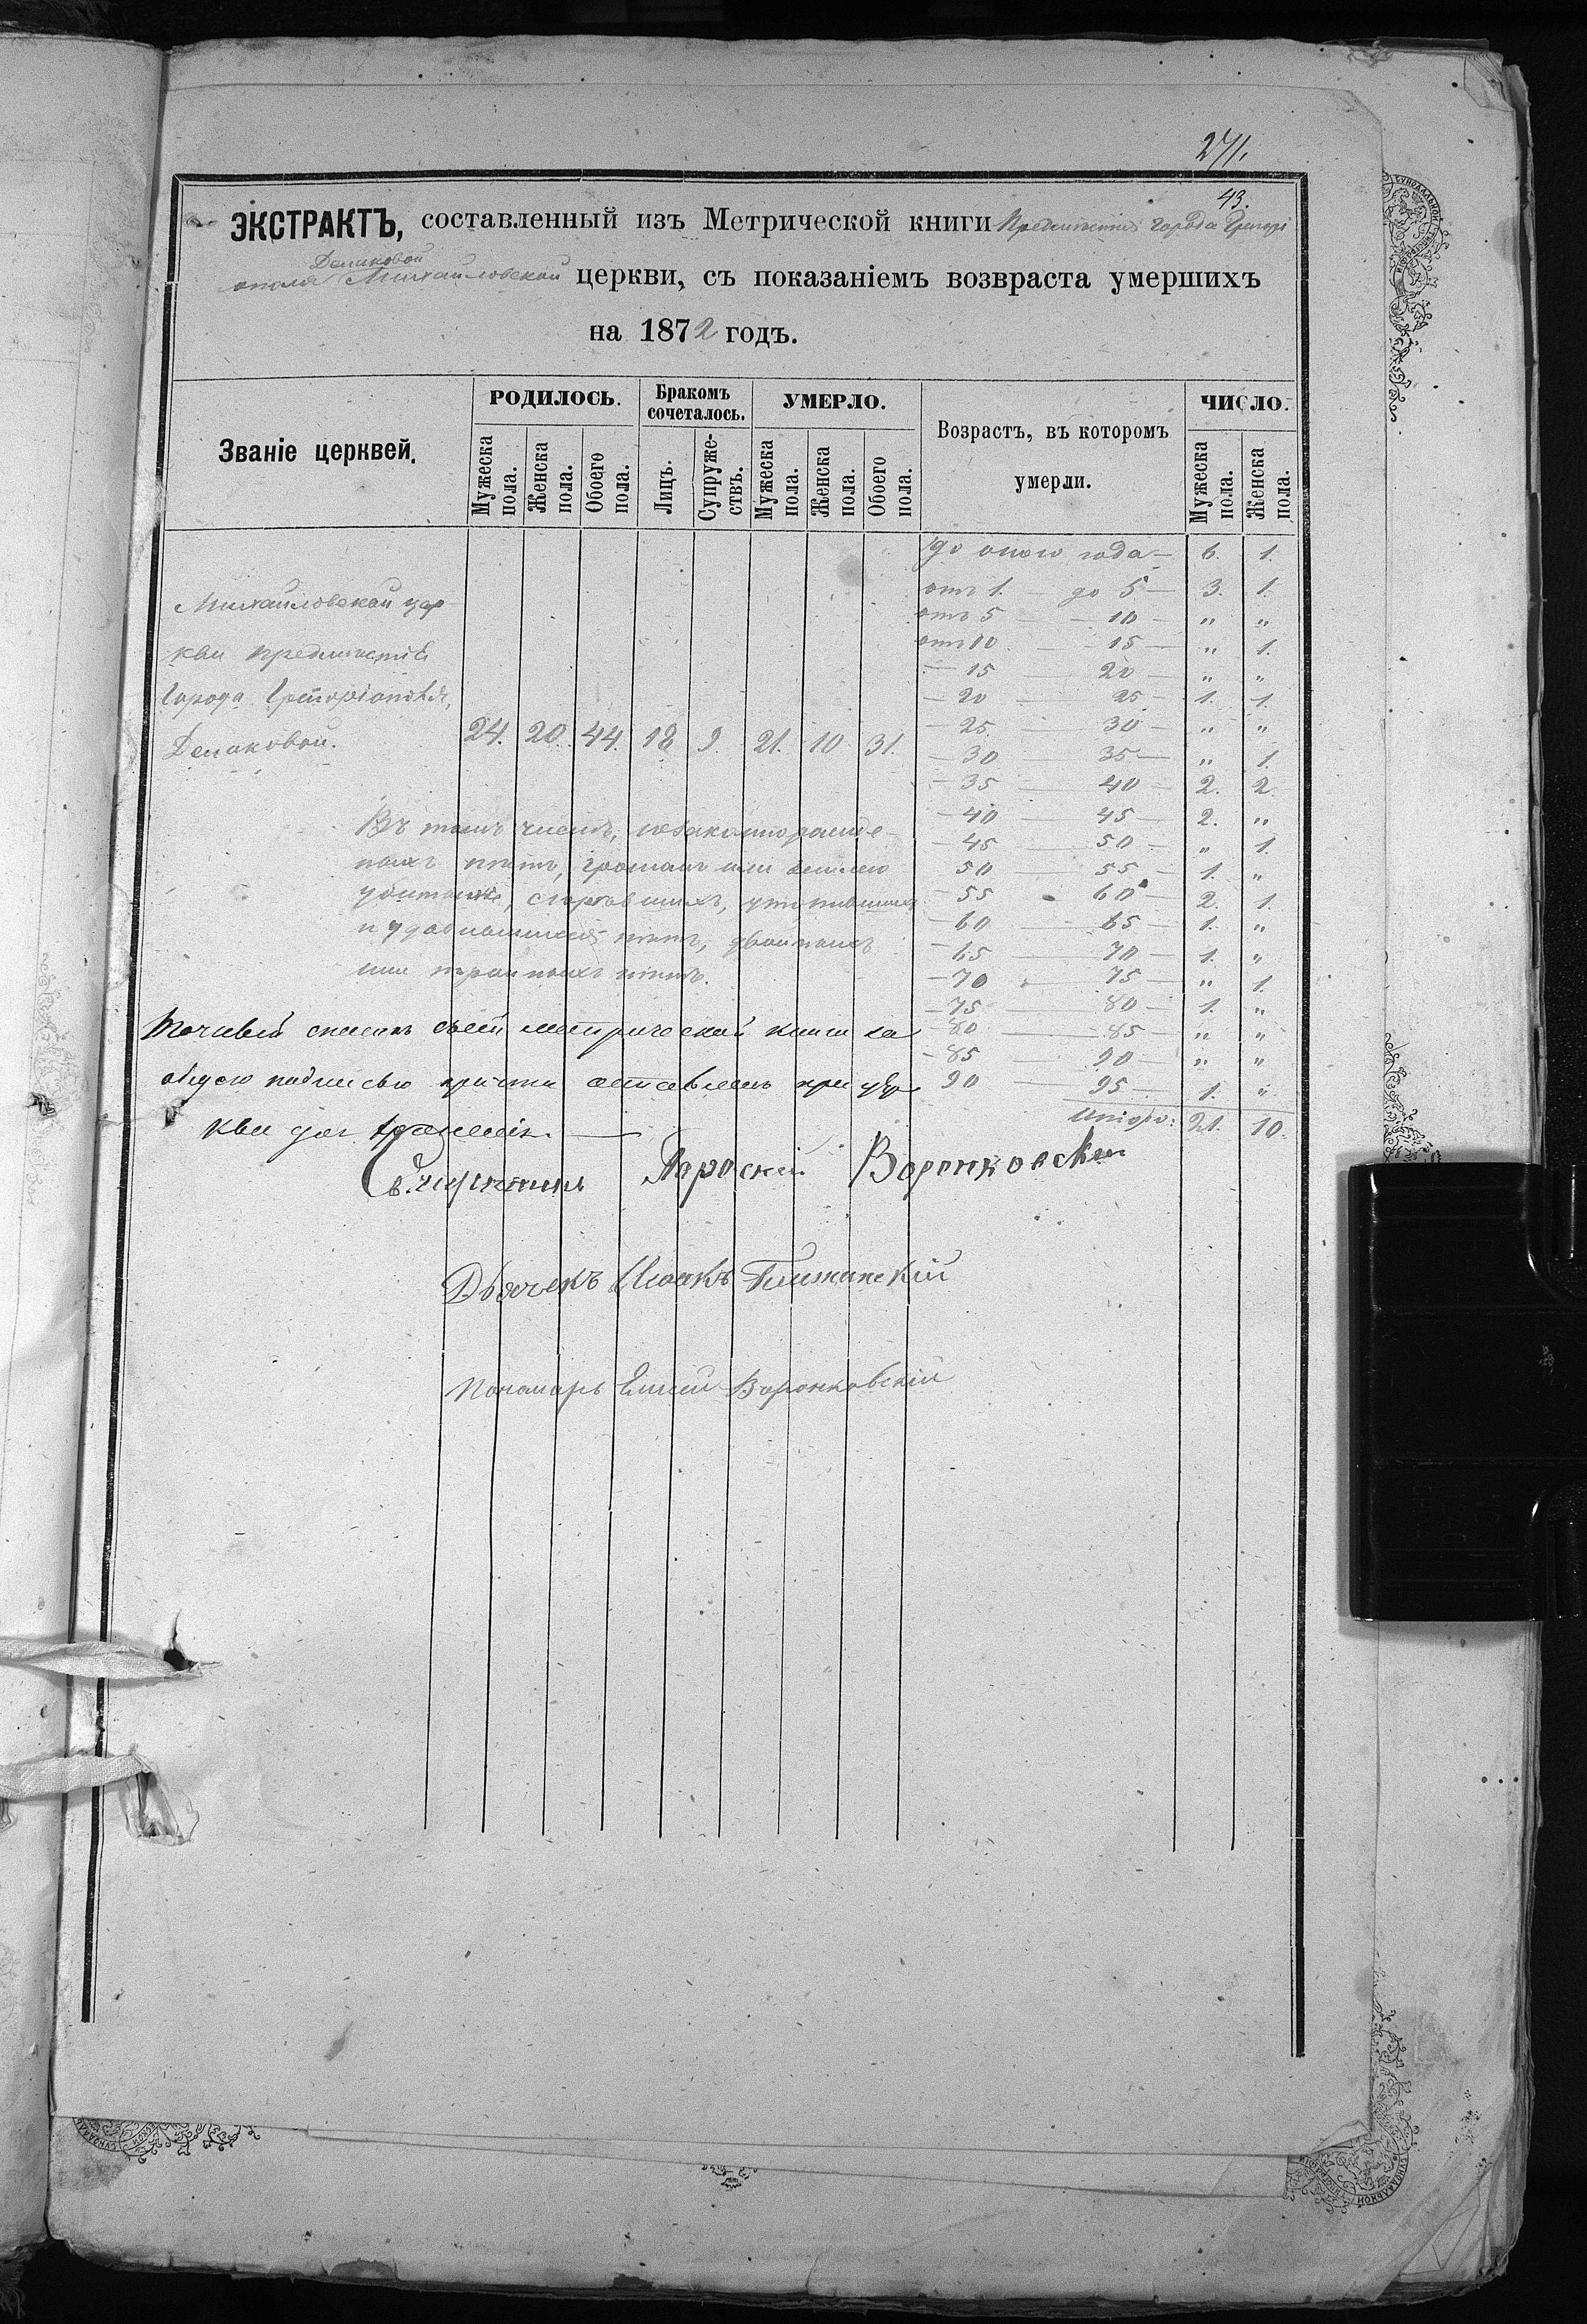 271.
43.
ЭКСТРАКТЪ, составленный изъ Метрической книги Предмѣстія города Григорі
Делаковой
ополя Михайловской церкви, съ показаніемъ возвраста умершихъ
на 1872 годъ.
Званіе церквей.
РОДИЛОСЬ.
Мужеска пола.
Женска пола.
Обоего пола.
Бракомъ сочеталось.
Лицъ.
Супружествъ.
УМЕРЛО.
Мужеска пола.
Женска пола.
Обоего пола.
Возрастъ, въ которомъ умерли.
ЧИСЛО.
Мужеска пола.
Женска пола.
Михайловской цер
кви предмѣстія
города Григоріополя,
Делаковой.
24. 20. 44. 18 9. 21. 10 31.
до оного года — 6. 1.
отъ 1. — до 5 — 3. 1.
отъ 5 — 10 — " "
отъ 10 — 15 — " 1.
— 15 — 20 — " "
— 20 — 25 — 1. 1.
— 25. — 30 — " "
— 30 — 35 — " 1.
— 35 — 40 — 2. 2.
— 40 — 45 — 2. "
— 45 — 50 — " 1.
50 — 55 — 1. "
— 55 — 60 — 2. 1.
— 60 — 65 — 1. "
— 65 — 70 — 1. "
— 70 — 75 — " 1.
— 75 — 80 — 1. "
— 80 — 85 — " "
— 85 — 90 — " "
90 — 95 — 1. "
Итого: 21. 10.
Въ томъ числѣ, незаконнорожде
ныхъ нѣтъ, громомъ или
сгорѣвшихъ, утонувшихъ
и удавившихся нѣтъ, двойныхъ
или тройныхъ нѣтъ.
Точный списокъ сей метрической книги за
общею подписью причта оставленъ при цер
кви для храненія. —
Священникъ Воронковскій
Дьячекъ Исаакъ
Пономарь Елисей Воронковскій